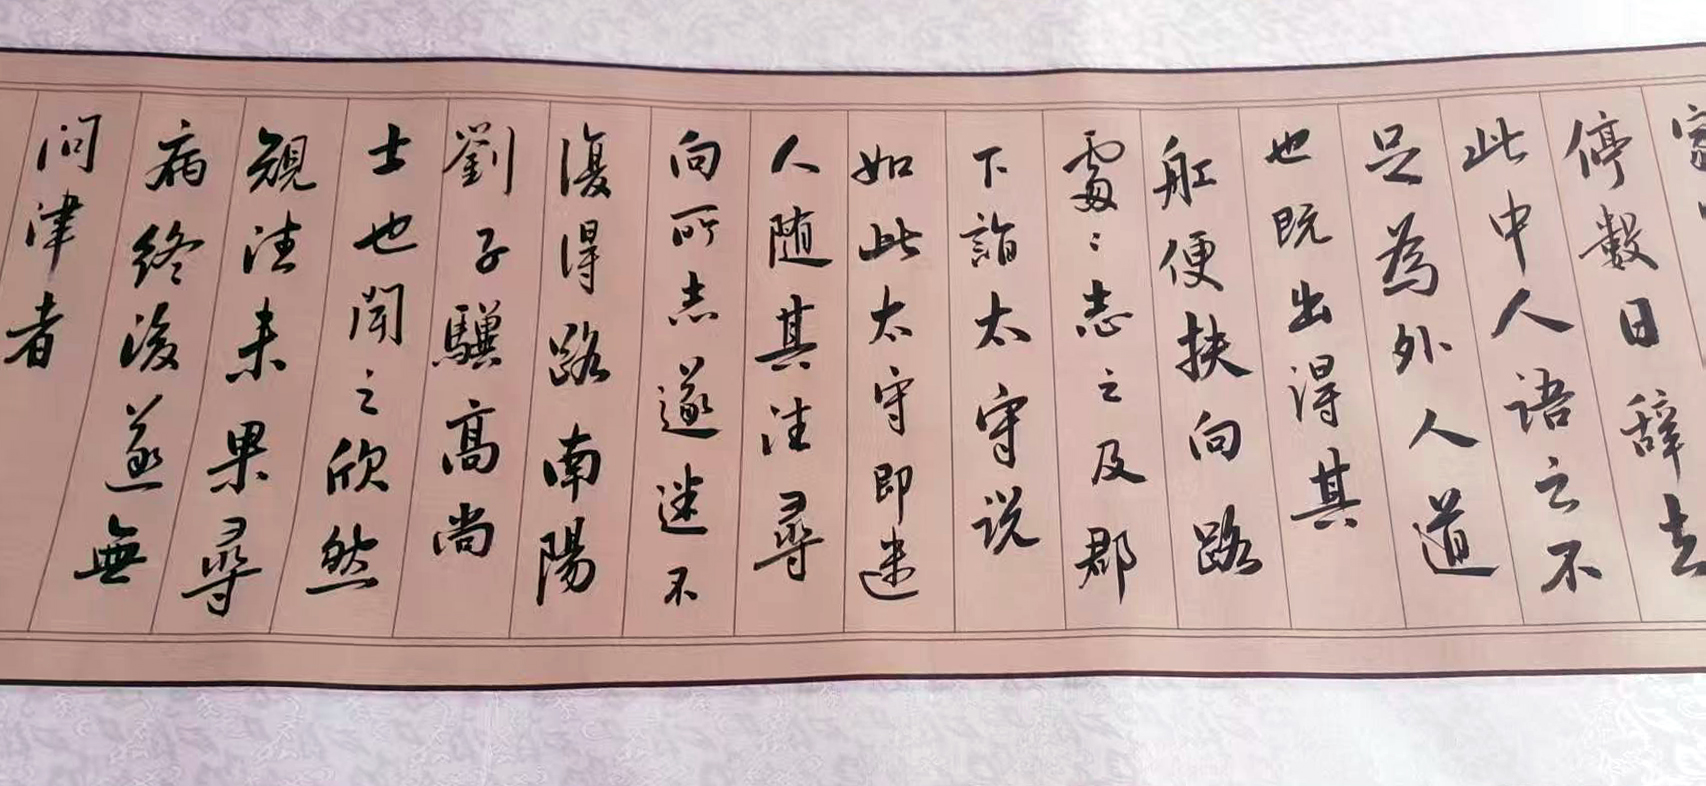 停數日辭去
此中人語云不
足為外人道
也既出得其
舡便扶向路
處〻志之及郡
下詣太守说
如此太守即遣
人随其往尋
向所志遂迷不
復得路南陽
劉子驥高尚
士也聞之欣然
規往未果尋
病終後遂無
问津者